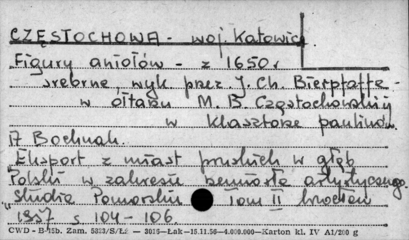 CZĘSTOCHOWA - woj. Katowice
Figury aniołów - z 1650 r
srebrne wyk przez J. Ch. Bierpfaffe -
w ołtarzu M. B. Częstochowskiej
w klasztorze paulinów.
A Bochnak.
"Eksport z miast pruskich w głąb
Polski w zakresie rzemiosła artystycznego
"Studia Pomorskie" Tom II Wrocław
1957 s 104 - 106.
CWD - B 15b. Zam. 5323/S/Łż - 3015-Łak-15.11.56-4.000.000-Karton kl. IV A1/210 g